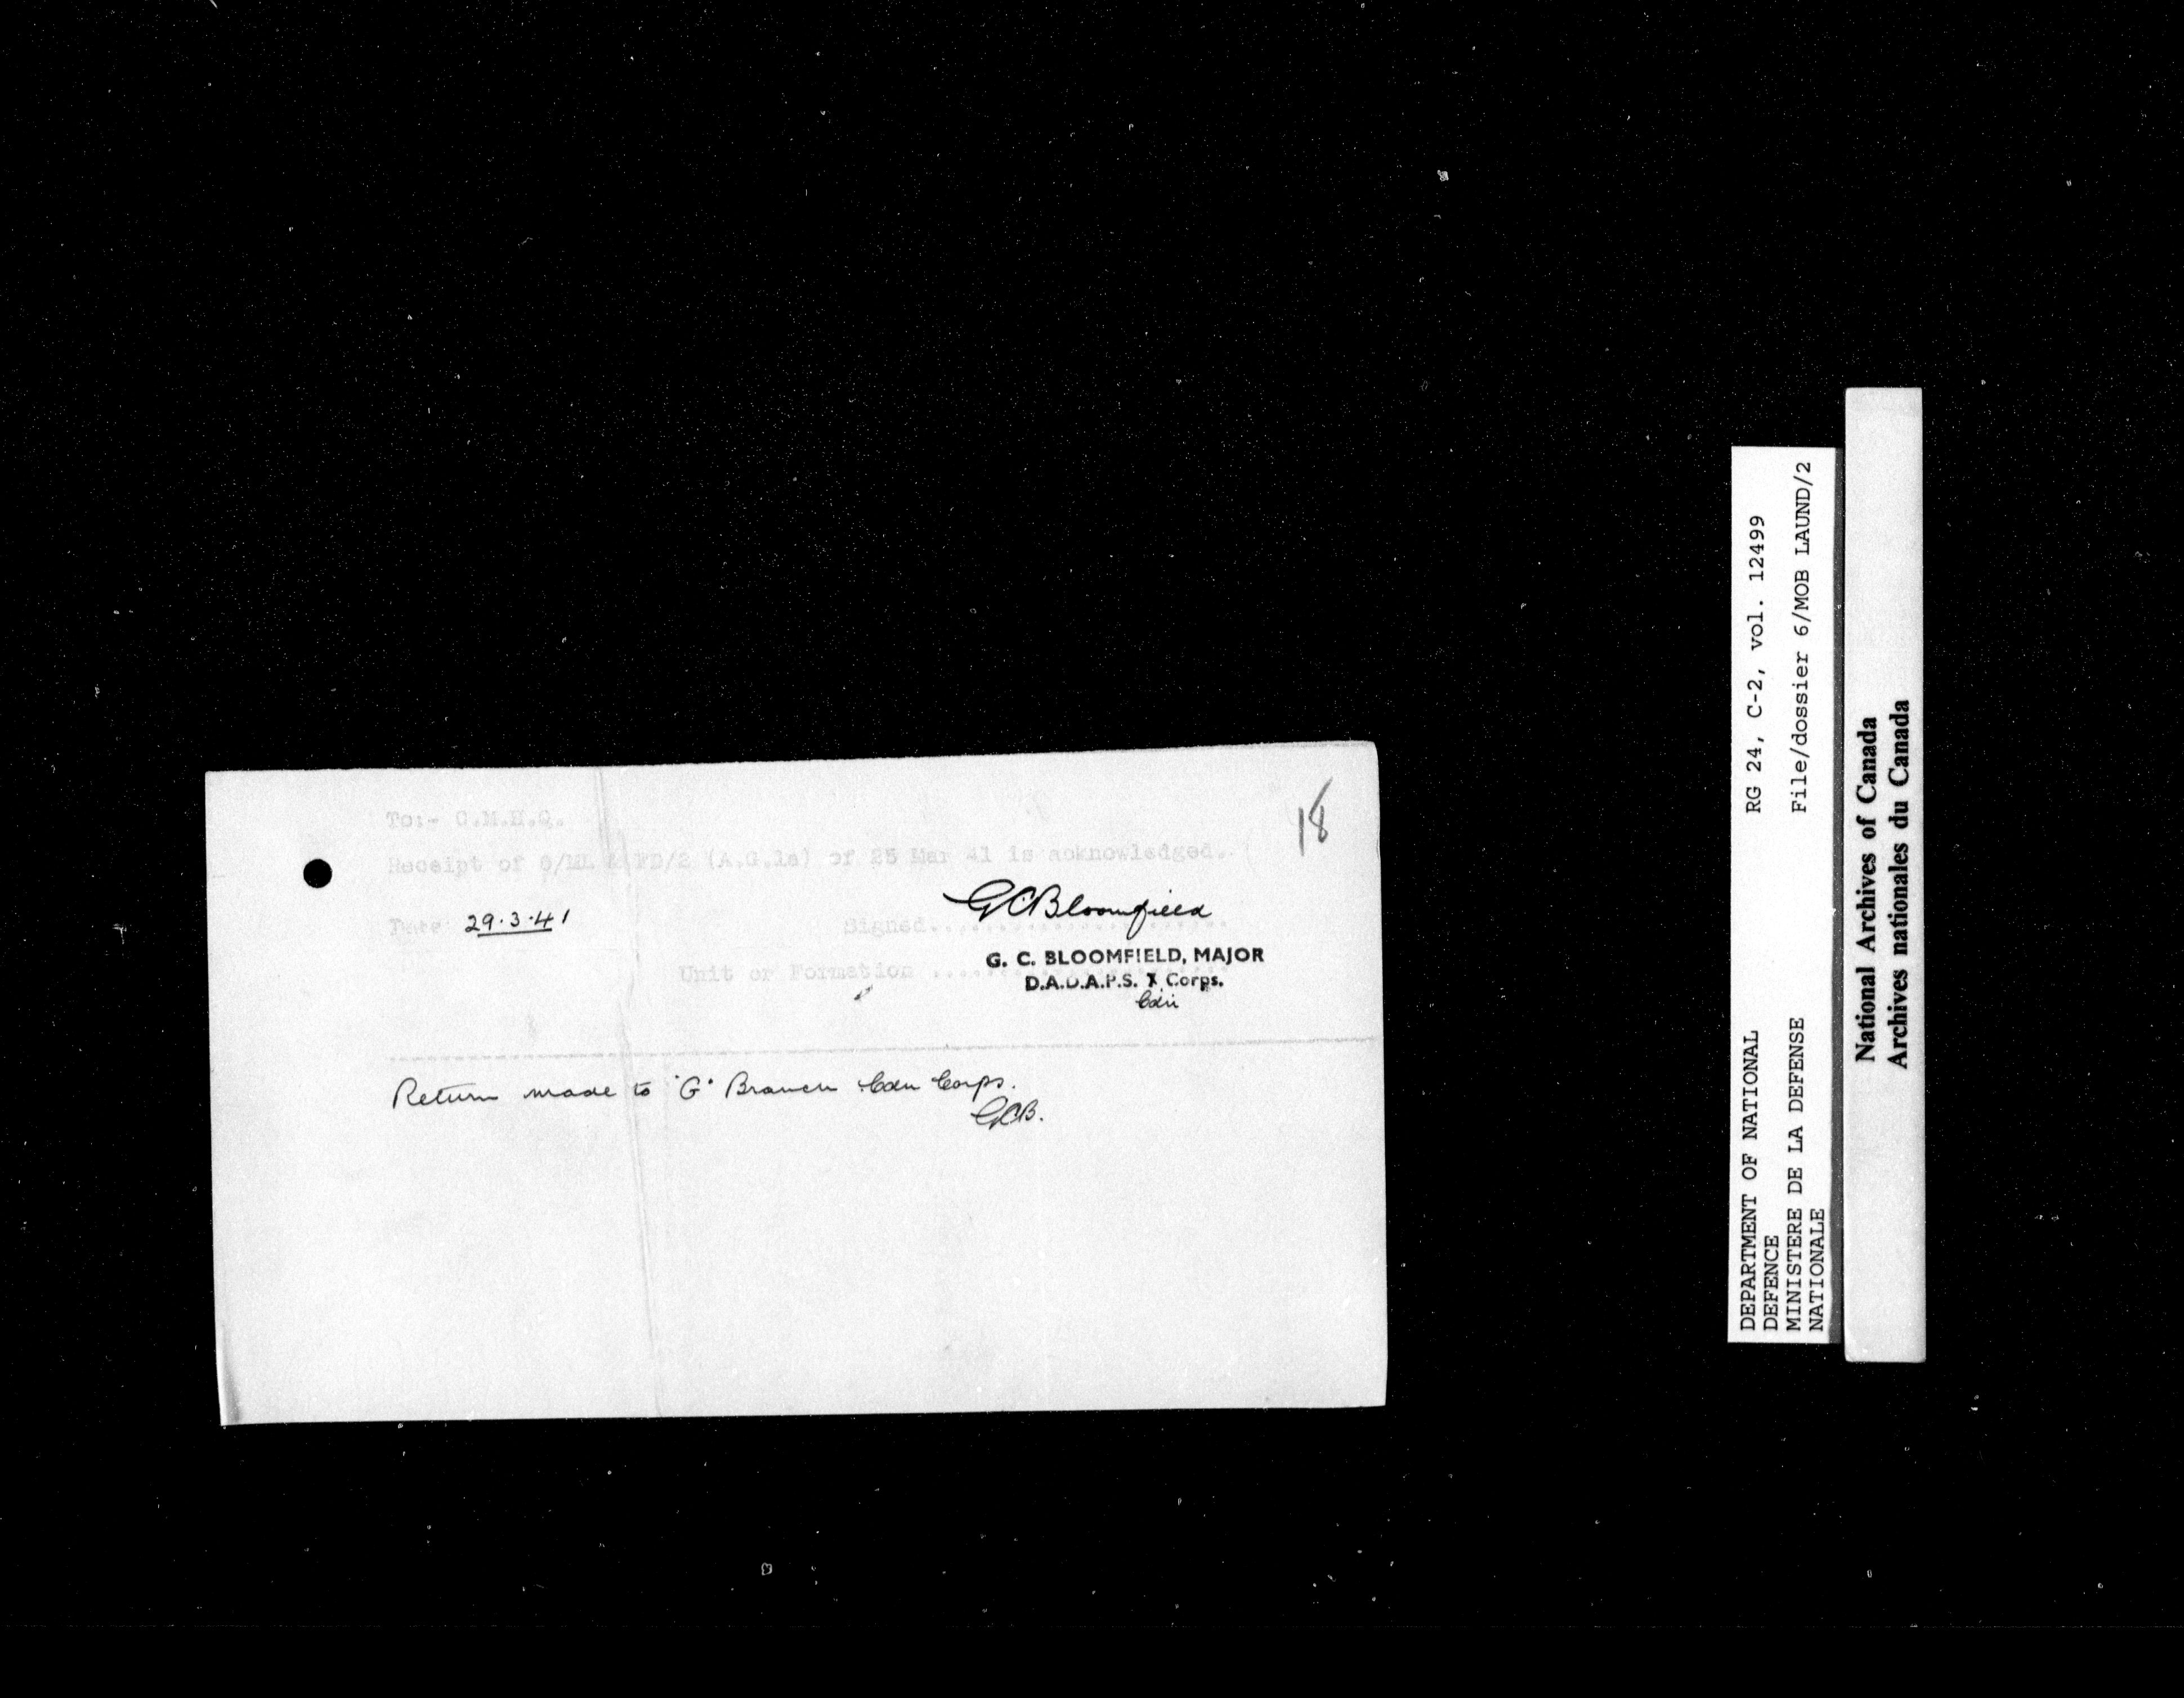 18
To:- C.M.H.Q.
Receipt of 6/ML & FD/2 (A.G.1a) of 25 Mar 41 is acknowledged.
Date 29.3.41
Signed........................
GCBloomfield
Unit or Formation ........................
G. C. BLOOMFIELD, MAJOR
D.A.D.A.P.S. Corps.
Cdn
Return made to "G" Branch Cdn Corps.
GCB.
RG 24, C-2, vol. 12499
File/dossier 6/MOB LAUND/2
DEPARTMENT OF NATIONAL
DEFENCE
MINISTERE DE LA DEFENSE
NATIONALE
National Archives of Canada
Archives nationales du Canada